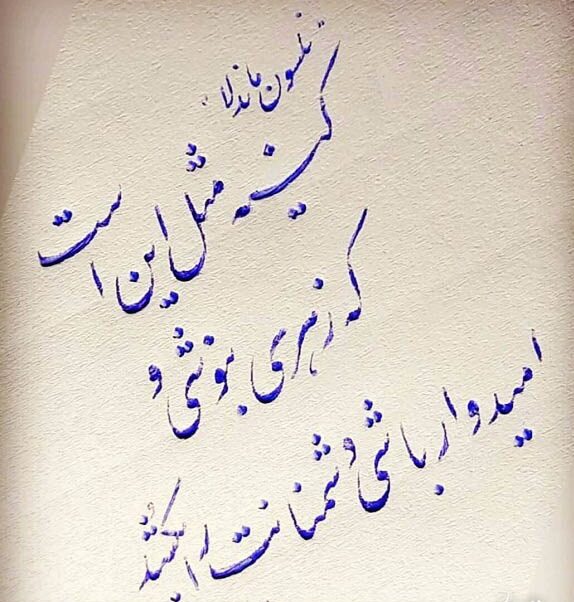 نلسون ماندلا:
کینه مثل این است
که زهری بنوشی و
امیدوار باشی دشمنانت را بکُشد